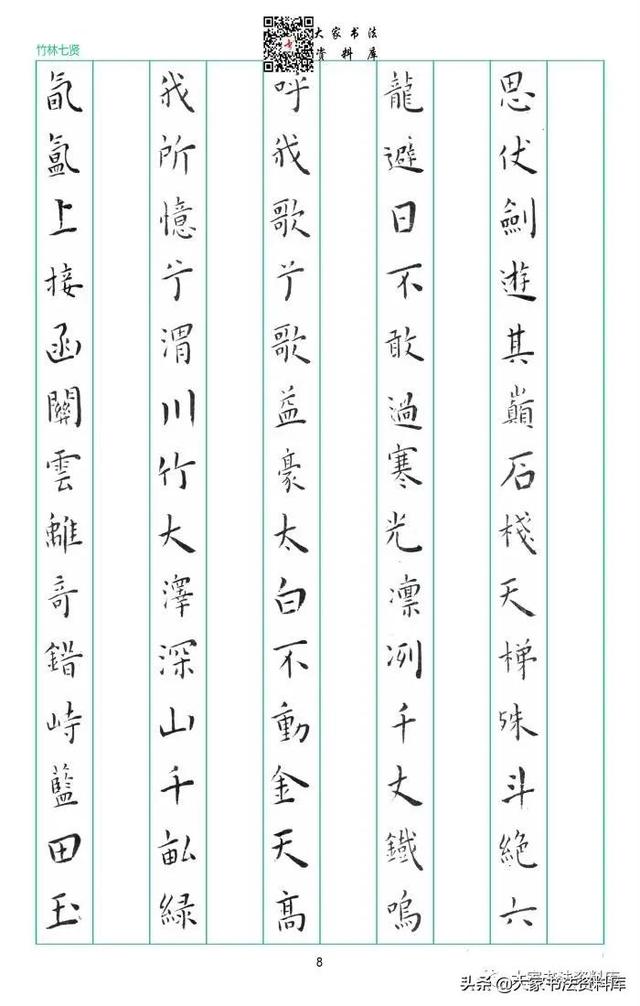 竹林七贤
大家书法
资料库
思伏劍遊其巔石棧天梯殊斗絶六
龍避日不敢過寒光凛冽千丈鐵嗚
呼我歌兮歌益豪太白不動金天高
我所憶兮渭川竹大澤深山千畝緑
氤氲上接函關雲離奇錯峙藍田玉
8
大家书法资料库
头条@大家书法资料库